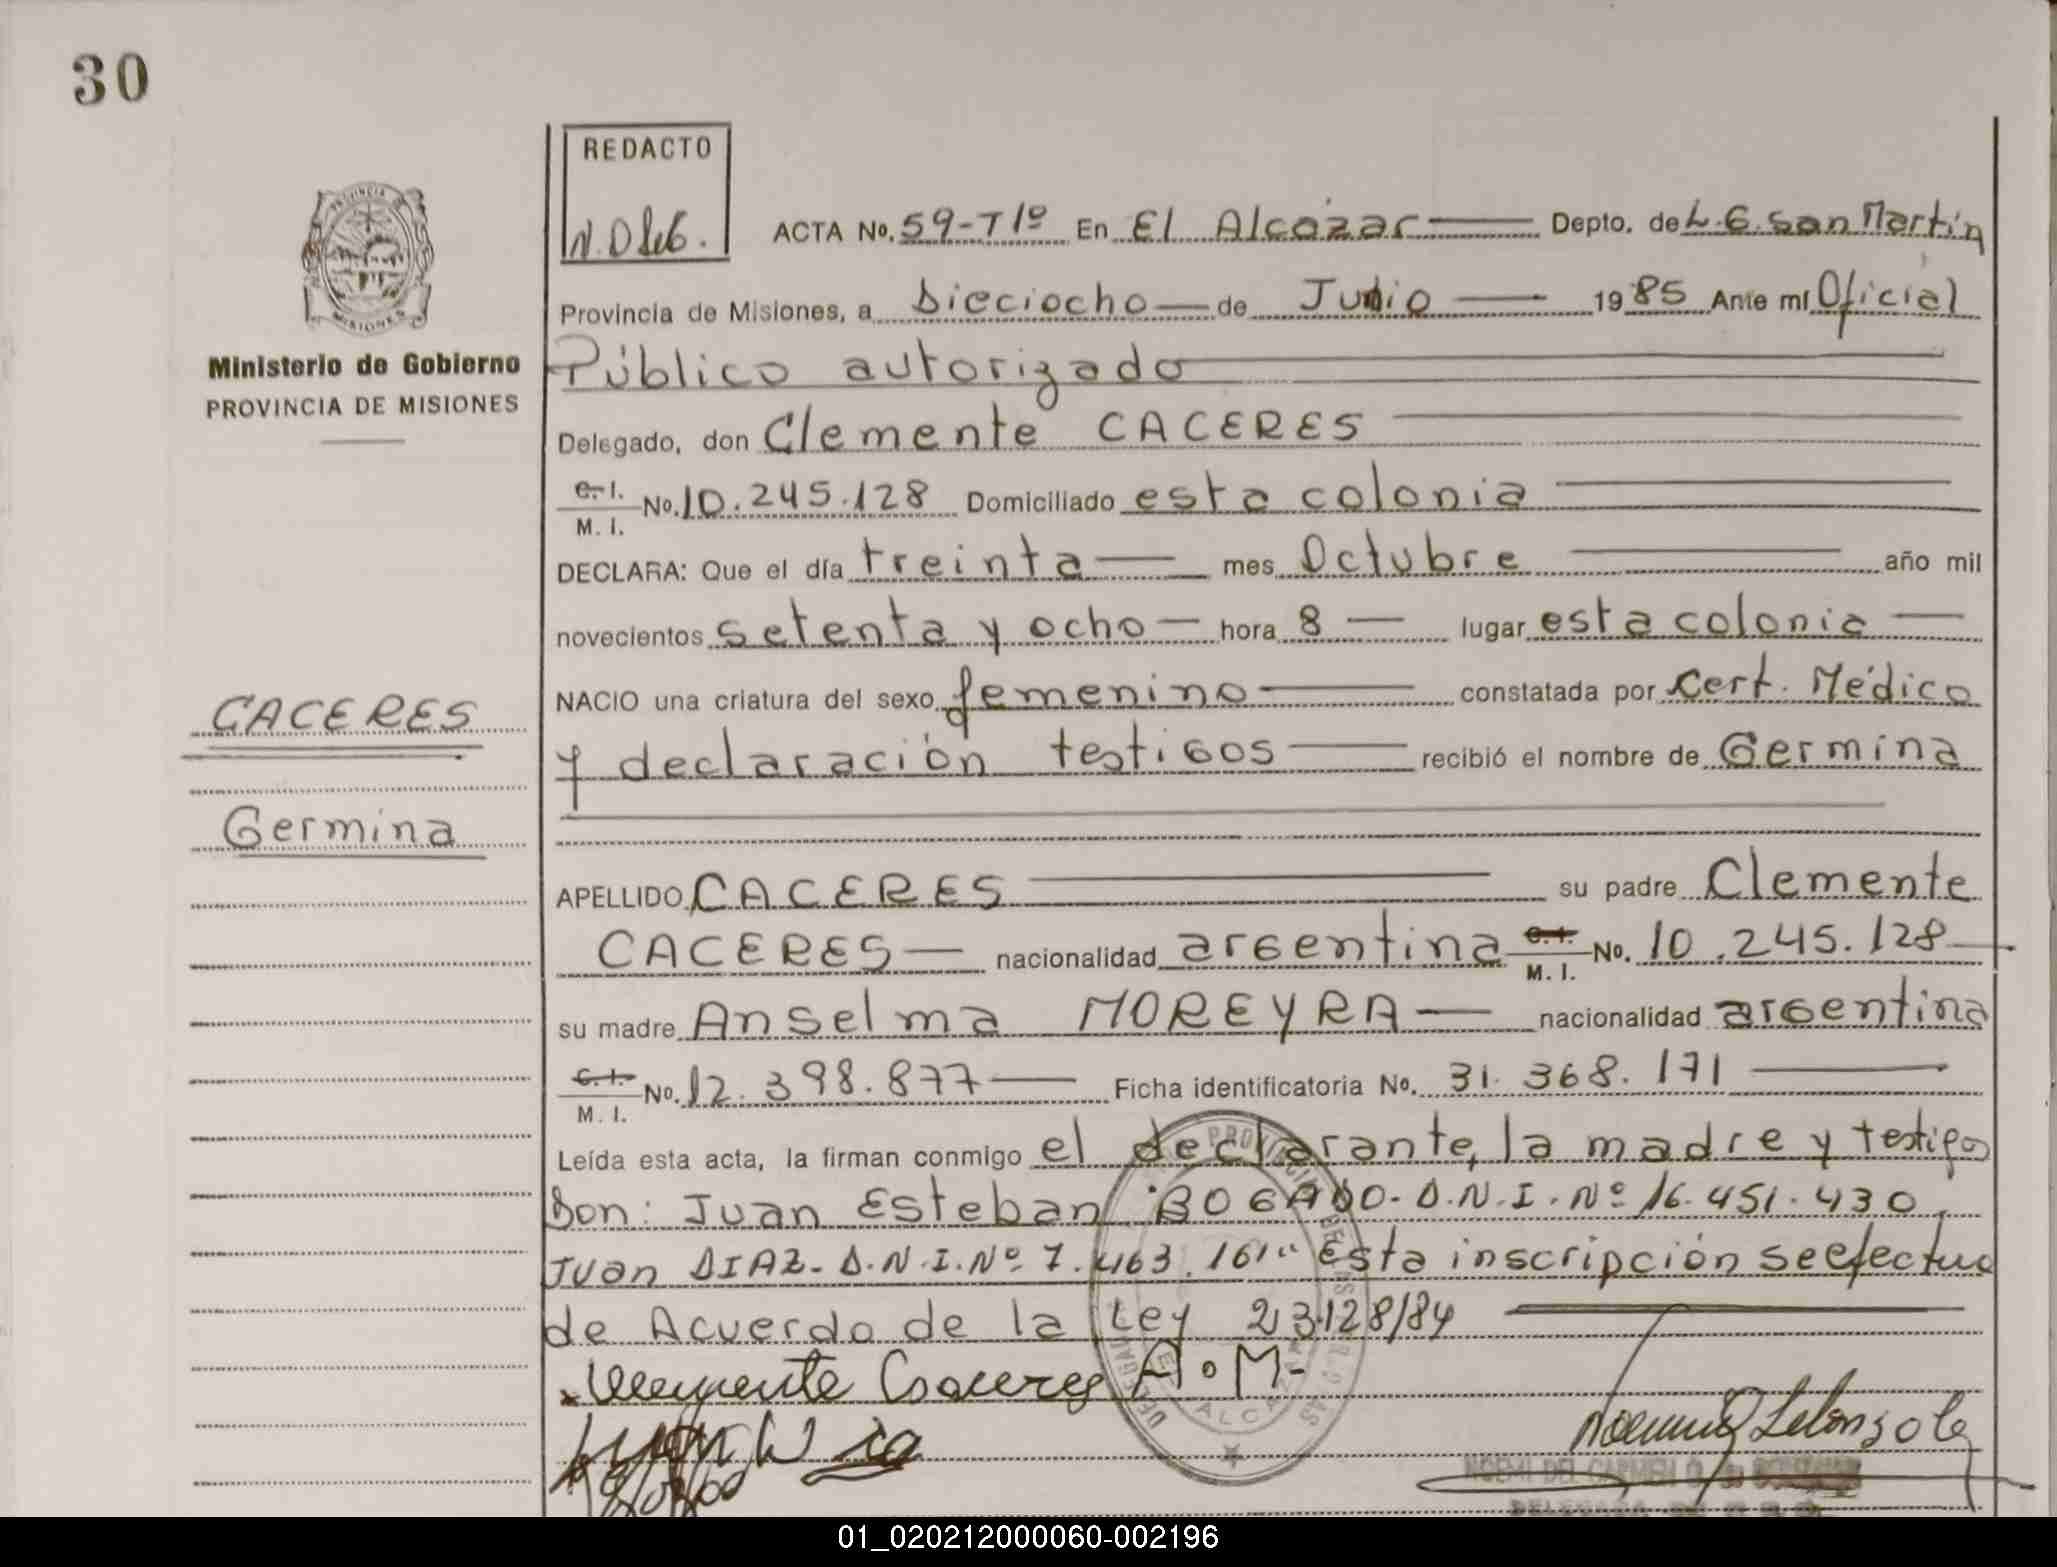 30
REDACTO
ACTA No. 59-T1º En El Alcázar Depto. de L.G. San Martín
Provincia de Misiones, a Dieciocho de Junio 1985 Ante mí Oficial
Ministerio de Gobierno
PROVINCIA DE MISIONES
Público autorizado
Delegado, don Clemente CACERES
C. I. M. I. No. 10.245.128 Domiciliado esta colonia
DECLARA: Que el día treinta mes Octubre año mil
novecientos setenta y ocho hora 8 lugar esta colonia
CACERES
NACIO una criatura del sexo femenino constatada por Cert. Médico
y declaración testigos recibió el nombre de Germina
Germina
APELLIDO CACERES su padre Clemente
CACERES nacionalidad argentina C. I. M. I. No. 10.245.128
su madre Anselma MOREYRA nacionalidad argentina
C. I. M. I. No. 12.398.877 Ficha identificatoria No. 31.368.171
Leída esta acta, la firman conmigo el declarante, la madre y testigos
Don: Juan Esteban BOGADO- D.N.I. Nº 16.451.430
Juan DIAZ- D.N.I. Nº 7.463.161" Esta inscripción se efectua
de Acuerdo de la Ley 23128/84
Clemente Caceres A.M-
01_020212000060-002196